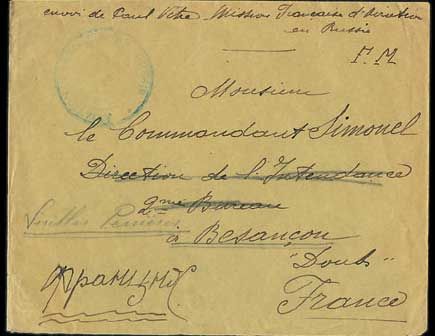 envoi de Paul Vitre Mission Française d'Aviation
en Russie
F. M
Monsieur
le Commandant Simonel
Direction de l'Intendance
2me Bureau
à Besançon
"Doubs"
France